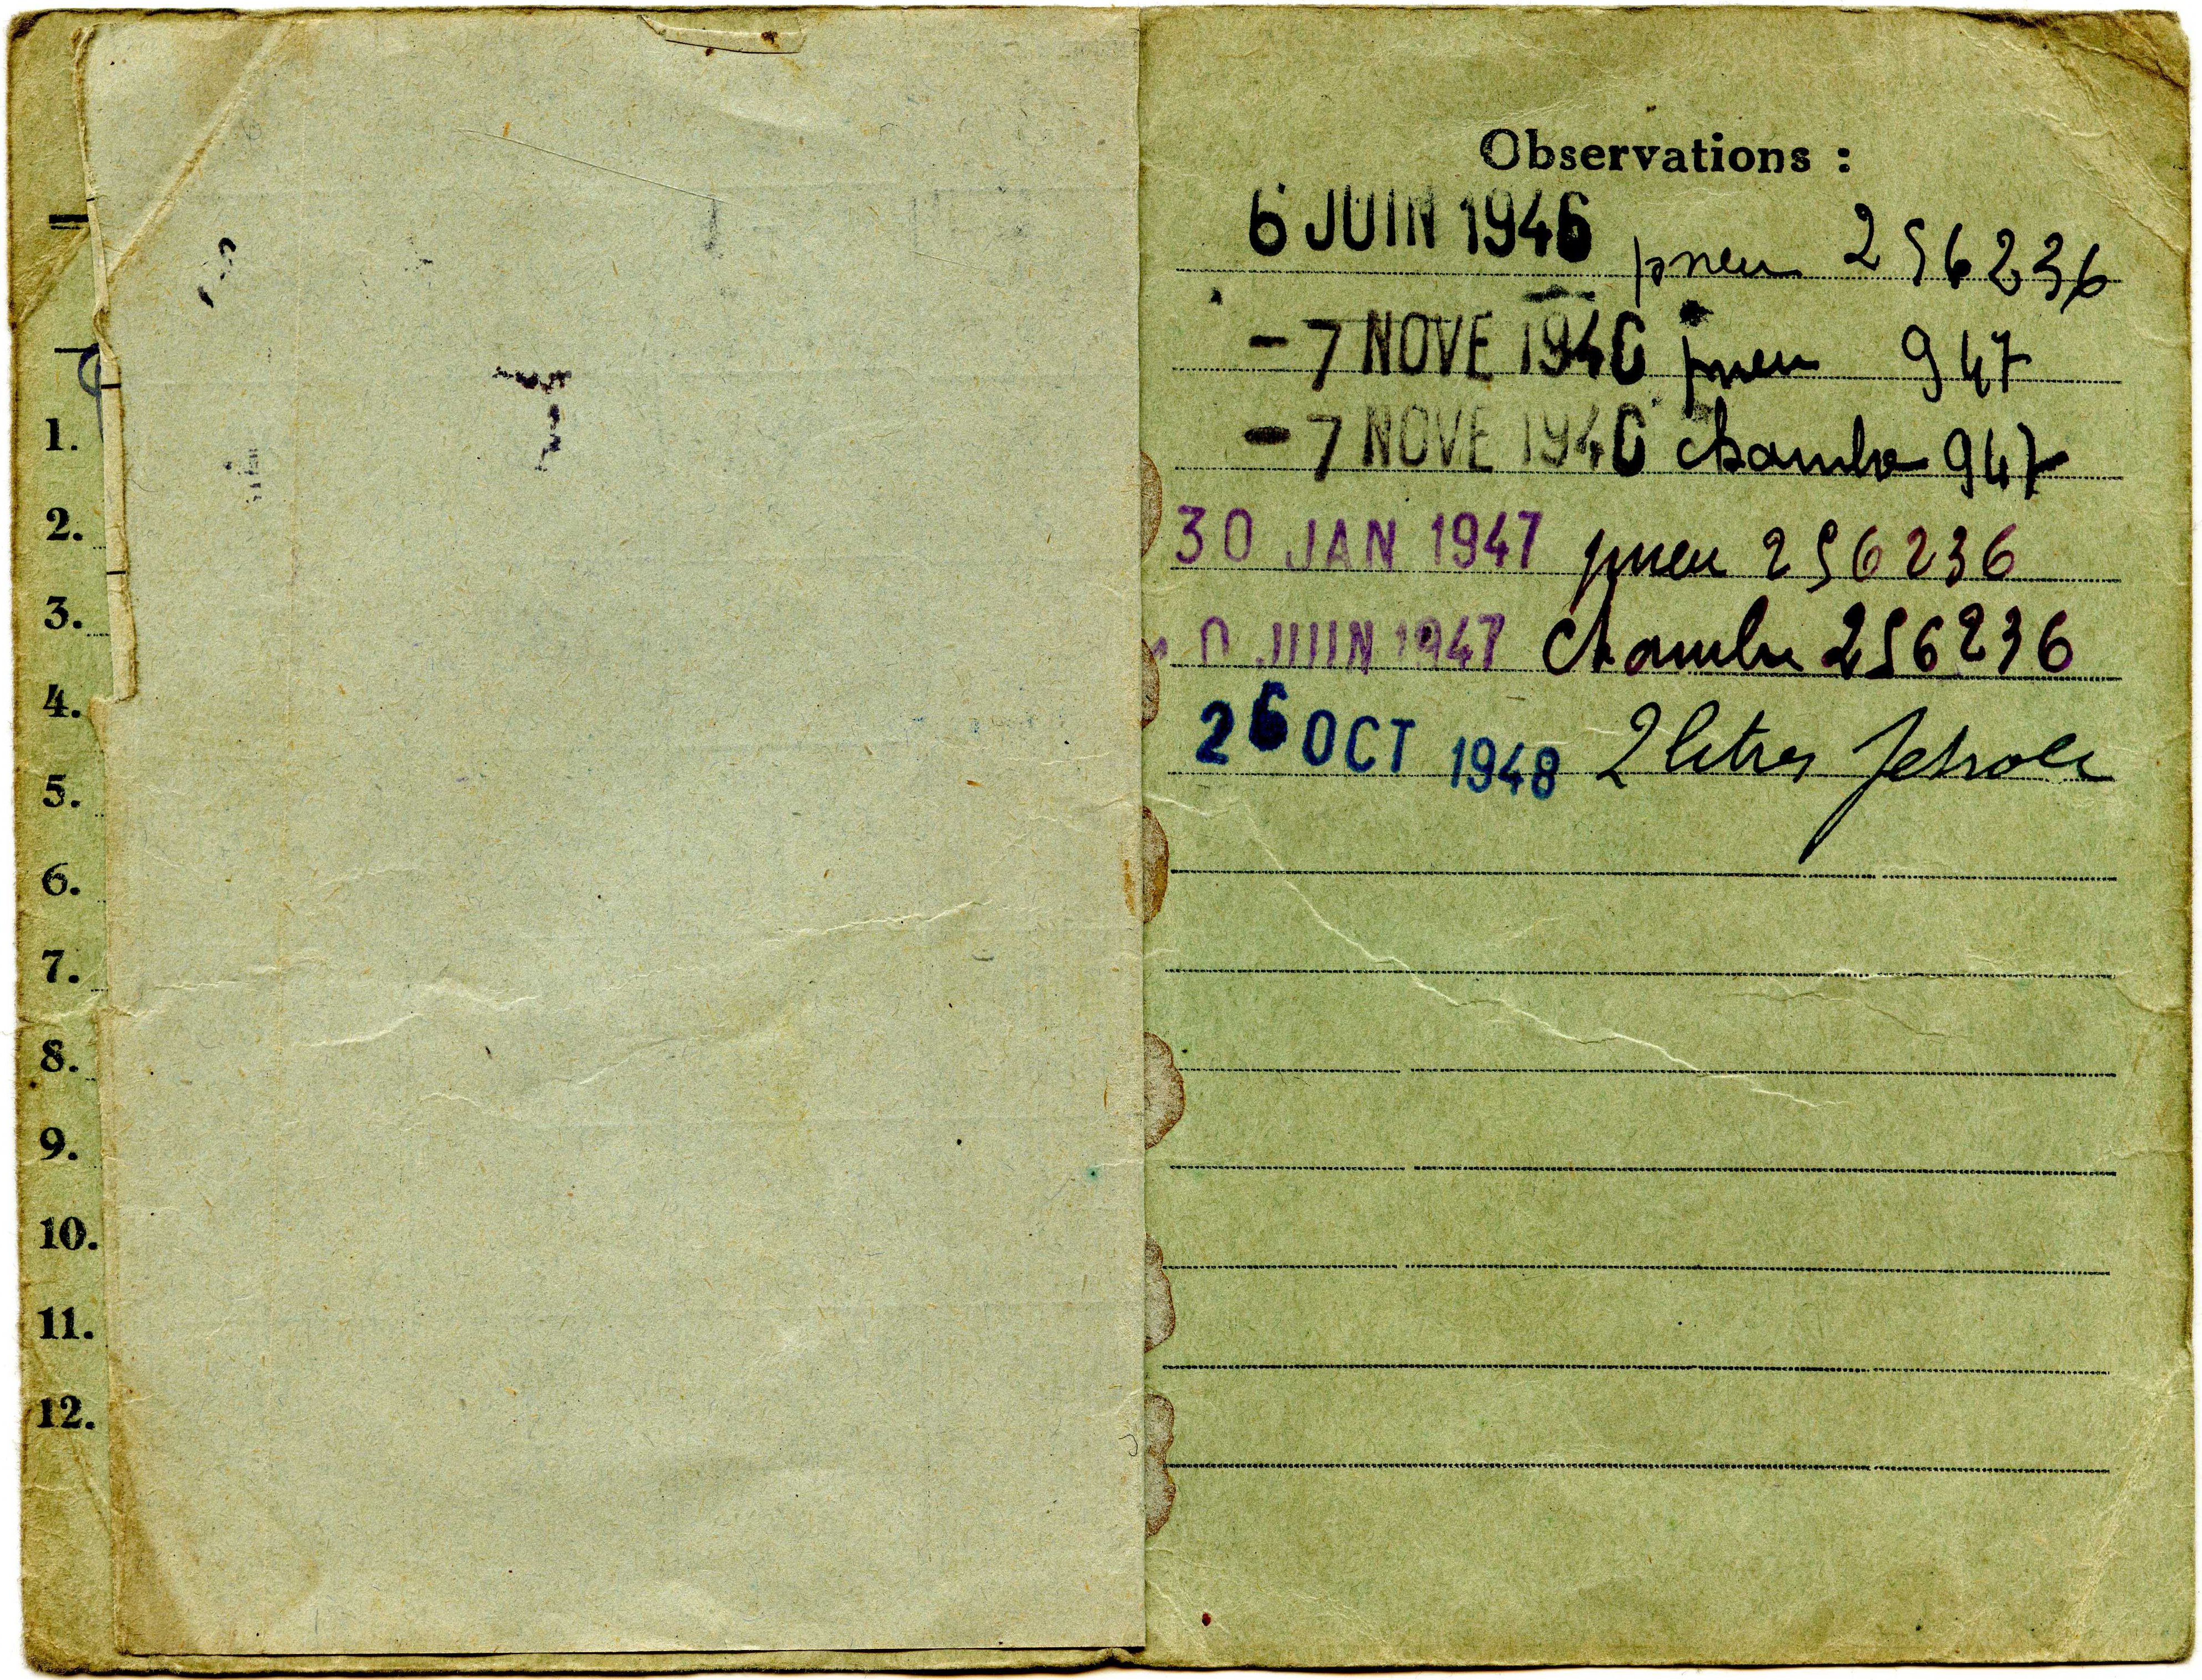 =
1.
2.
3.
4.
5.
6.
7.
8.
9.
10.
11.
12.
Observations :
6 JUIN 1946 pneu 256236
- 7 NOVE 1946 pneu 947
- 7 NOVE 1946 chambre 947
30 JAN 1947 pneu 256236
0 JUIN 1947 chambre 256236
26 OCT 1948 2 litres petrole